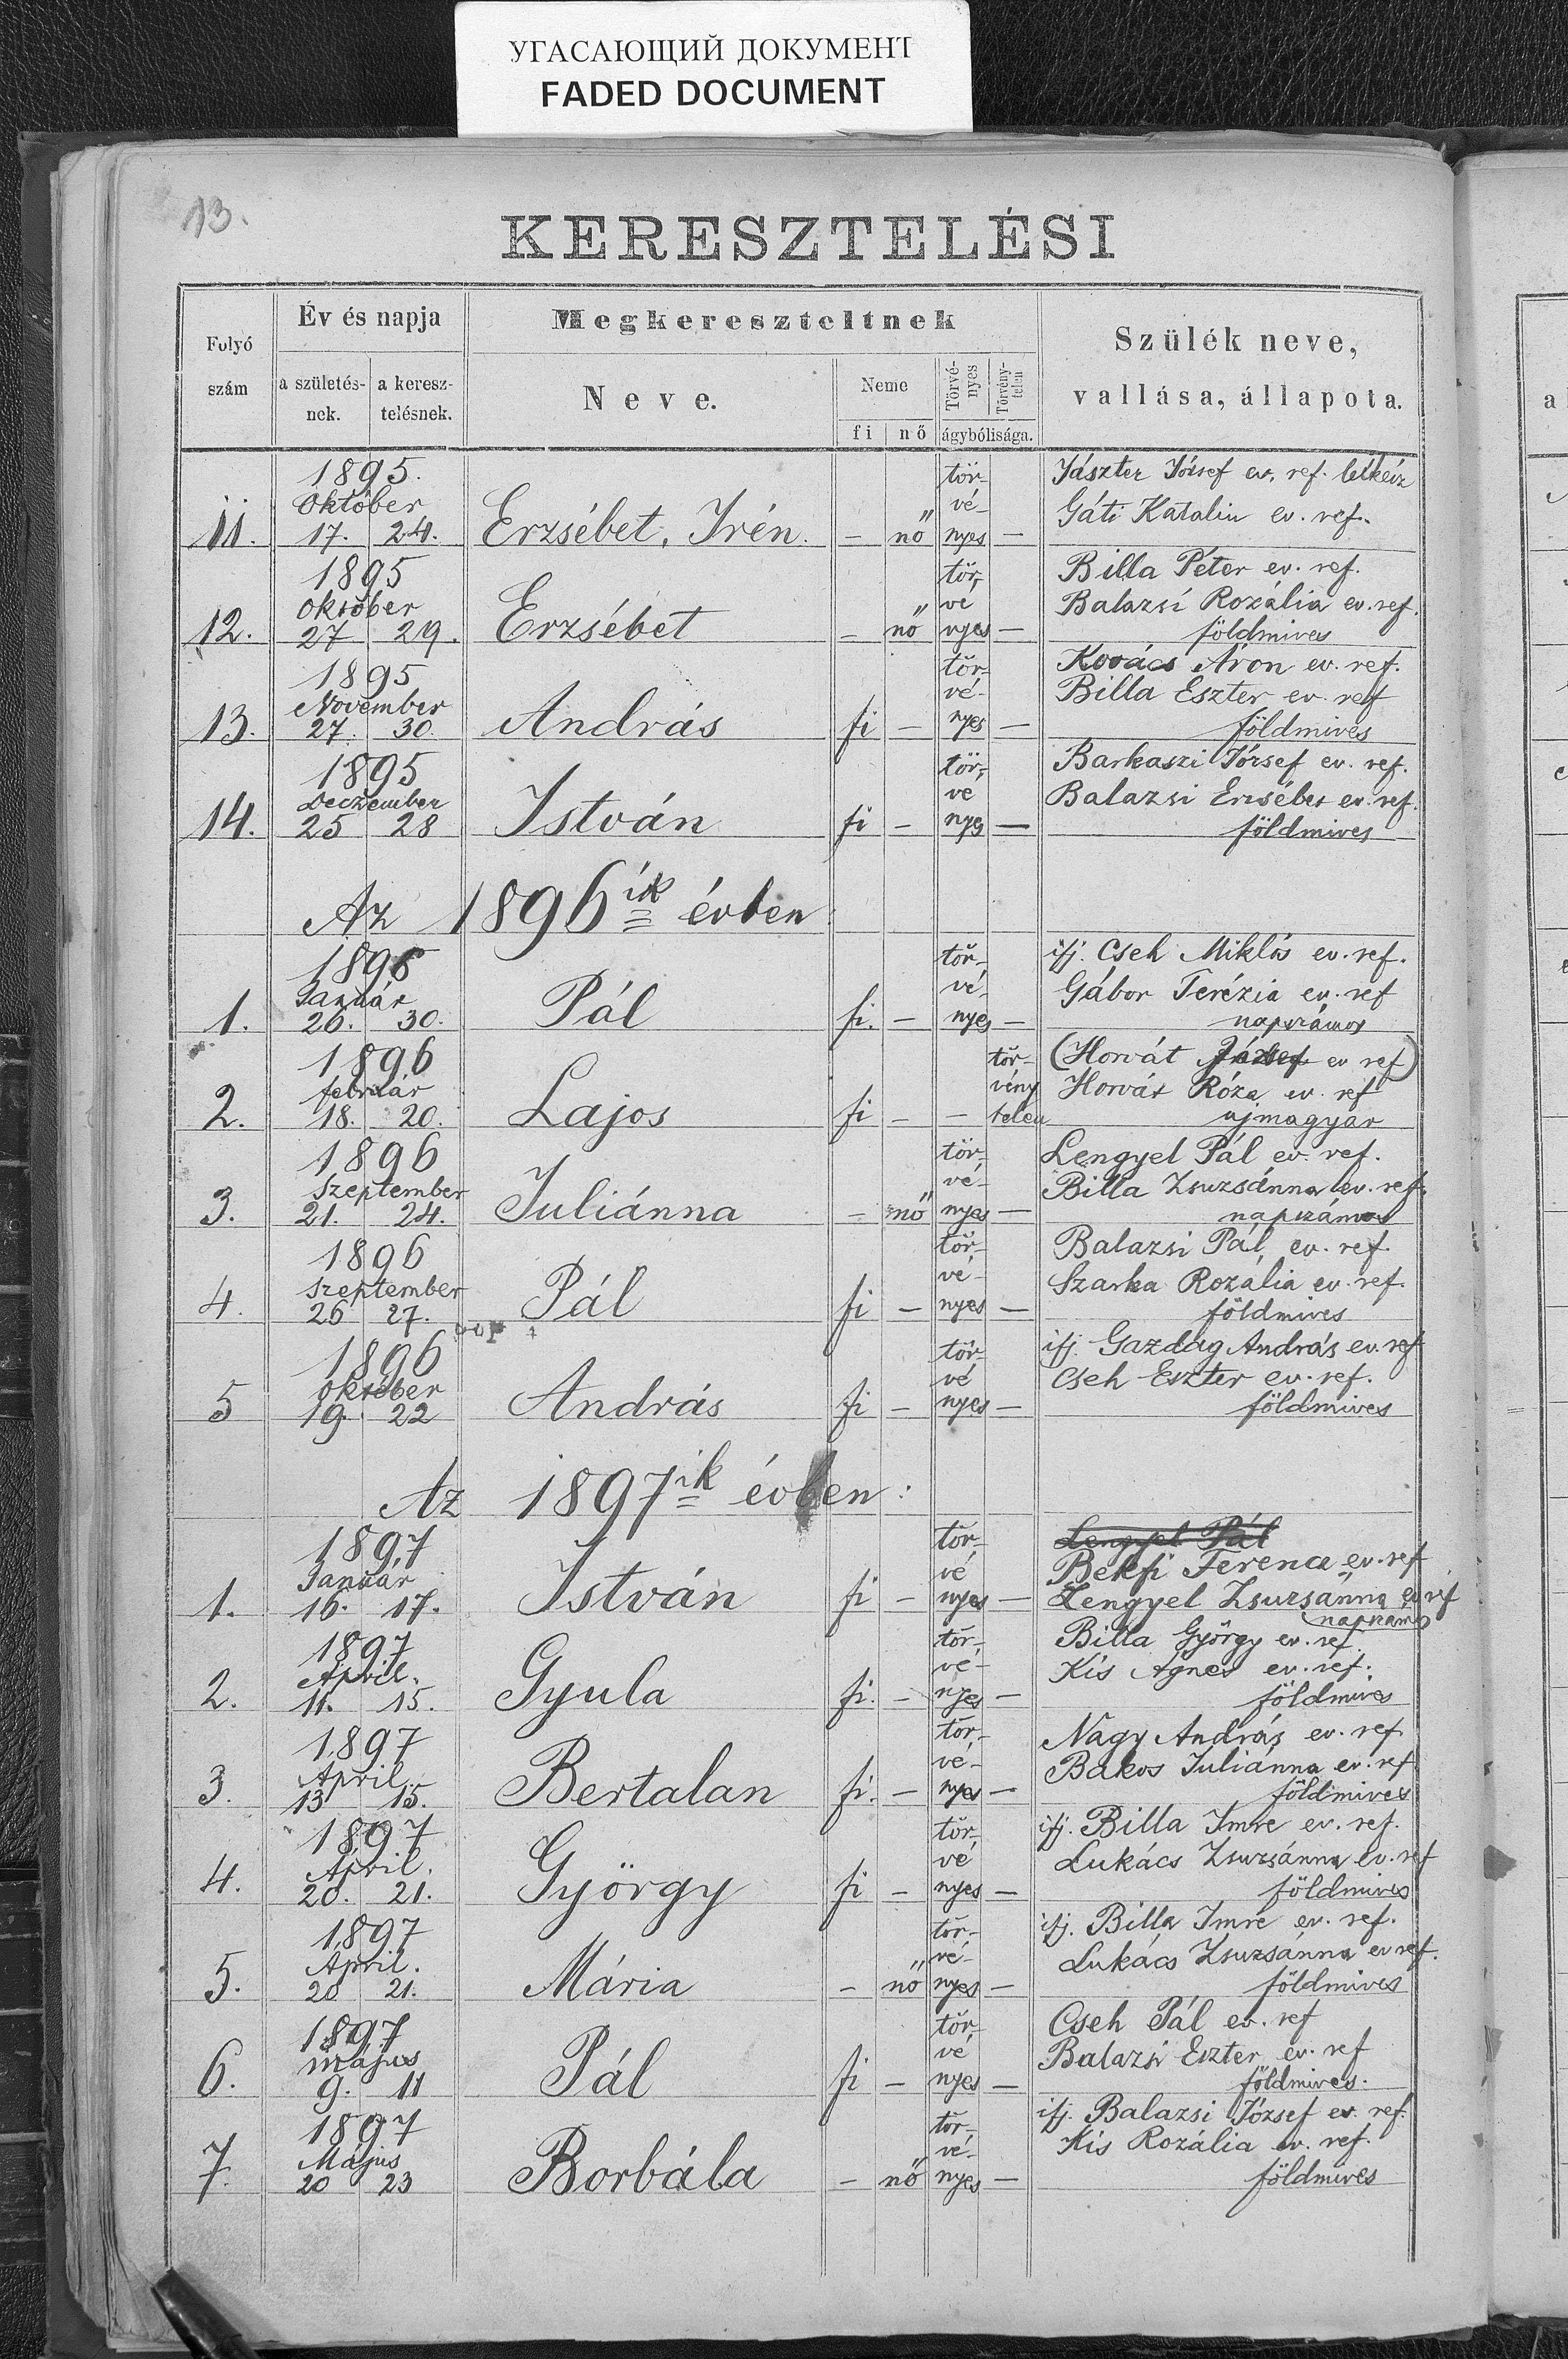 УГАСАЮЩИЙ ДОКУМЕНТ
FADED DOCUMENT
13.
KERESZTELÉSI
Folyó szám
Év és napja
a születés-nek.
a keresz-telésnek.
Megkereszteltnek
Neve.
Neme
fi
nő
Törvé-nyes
Törvény-telen
ágybólisága.
Szülék neve,
vallása, állapota.
1895. tör- Jászter József ev. ref. lelkész
Október vé- Gáti Katalin ev. ref.
11. 17. 24. Erzsébet, Irén. – nő nyes –
1895 tör- Billa Péter ev. ref.
Október vé Balazsi Rozália ev. ref.
12. 27 29. Erzsébet – nő nyes – földmives
1895 tör- Kovács Áron ev. ref.
November vé- Billa Eszter ev. ref
13. 27. 30. András fi – nyes – földmives
1895 tör- Barkaszi József ev. ref.
Deczember vé Balazsi Erzsébet ev. ref.
14. 25 28 István fi – nyes – földmives
Az 1896ik évben
1896 tör- ifj. Cseh Miklós ev. ref.
Január vé- Gábor Terézia ev. ref
1. 26. 30. Pál fi. – nyes – napszámos
1896 tör- (Horvát József ev ref)
február vény Horvát Róza ev. ref
2. 18. 20. Lajos fi – – telen ujmagyar
1896 tör- Lengyel Pál ev. ref.
Szeptember vé- Billa Zsuzsánna ev. ref.
3. 21. 24. Juliánna – nő nyes – napszámos
1896 tör- Balazsi Pál, ev. ref.
Szeptember vé- Szarka Rozália ev. ref.
4. 26 27. Pál fi – nyes – földmives
1896 tör- ifj. Gazdag András ev. ref
Október vé Cseh Eszter ev. ref.
5 19. 22 András fi – nyes – földmives
Az 1897ik évben:
1897 tör- Lengyel Pál
Január vé Bekfi Ferencz ev. ref
1. 16. 17. István fi – nyes – Lengyel Zsuzsánna ev ref
napszámos
1897 tör- Billa György ev. ref.
April. vé- Kis Ágnes ev. ref.
2. 11. 15. Gyula fi. – nyes – földmives
1897 tör- Nagy András ev. ref.
April vé- Bakos Juliánna ev. ref
3. 13 15. Bertalan fi. – nyes – földmives
1897 tör- ifj. Billa Imre ev. ref.
April. vé Lukács Zsuzsánna ev. ref
4. 20. 21. György fi – nyes – földmives
1897 tör- ifj. Billa Imre ev. ref.
April. vé- Lukács Zsuzsánna ev ref.
5. 20 21. Mária – nő nyes – földmives
1897 tör- Cseh Pál ev. ref
Május vé Balazsi Eszter ev. ref
6. 9. 11 Pál fi – nyes – földmives.
1897 tör- ifj. Balazsi József ev. ref.
Május vé- Kis Rozália ev. ref.
7. 20 23 Borbála – nő nyes – földmives